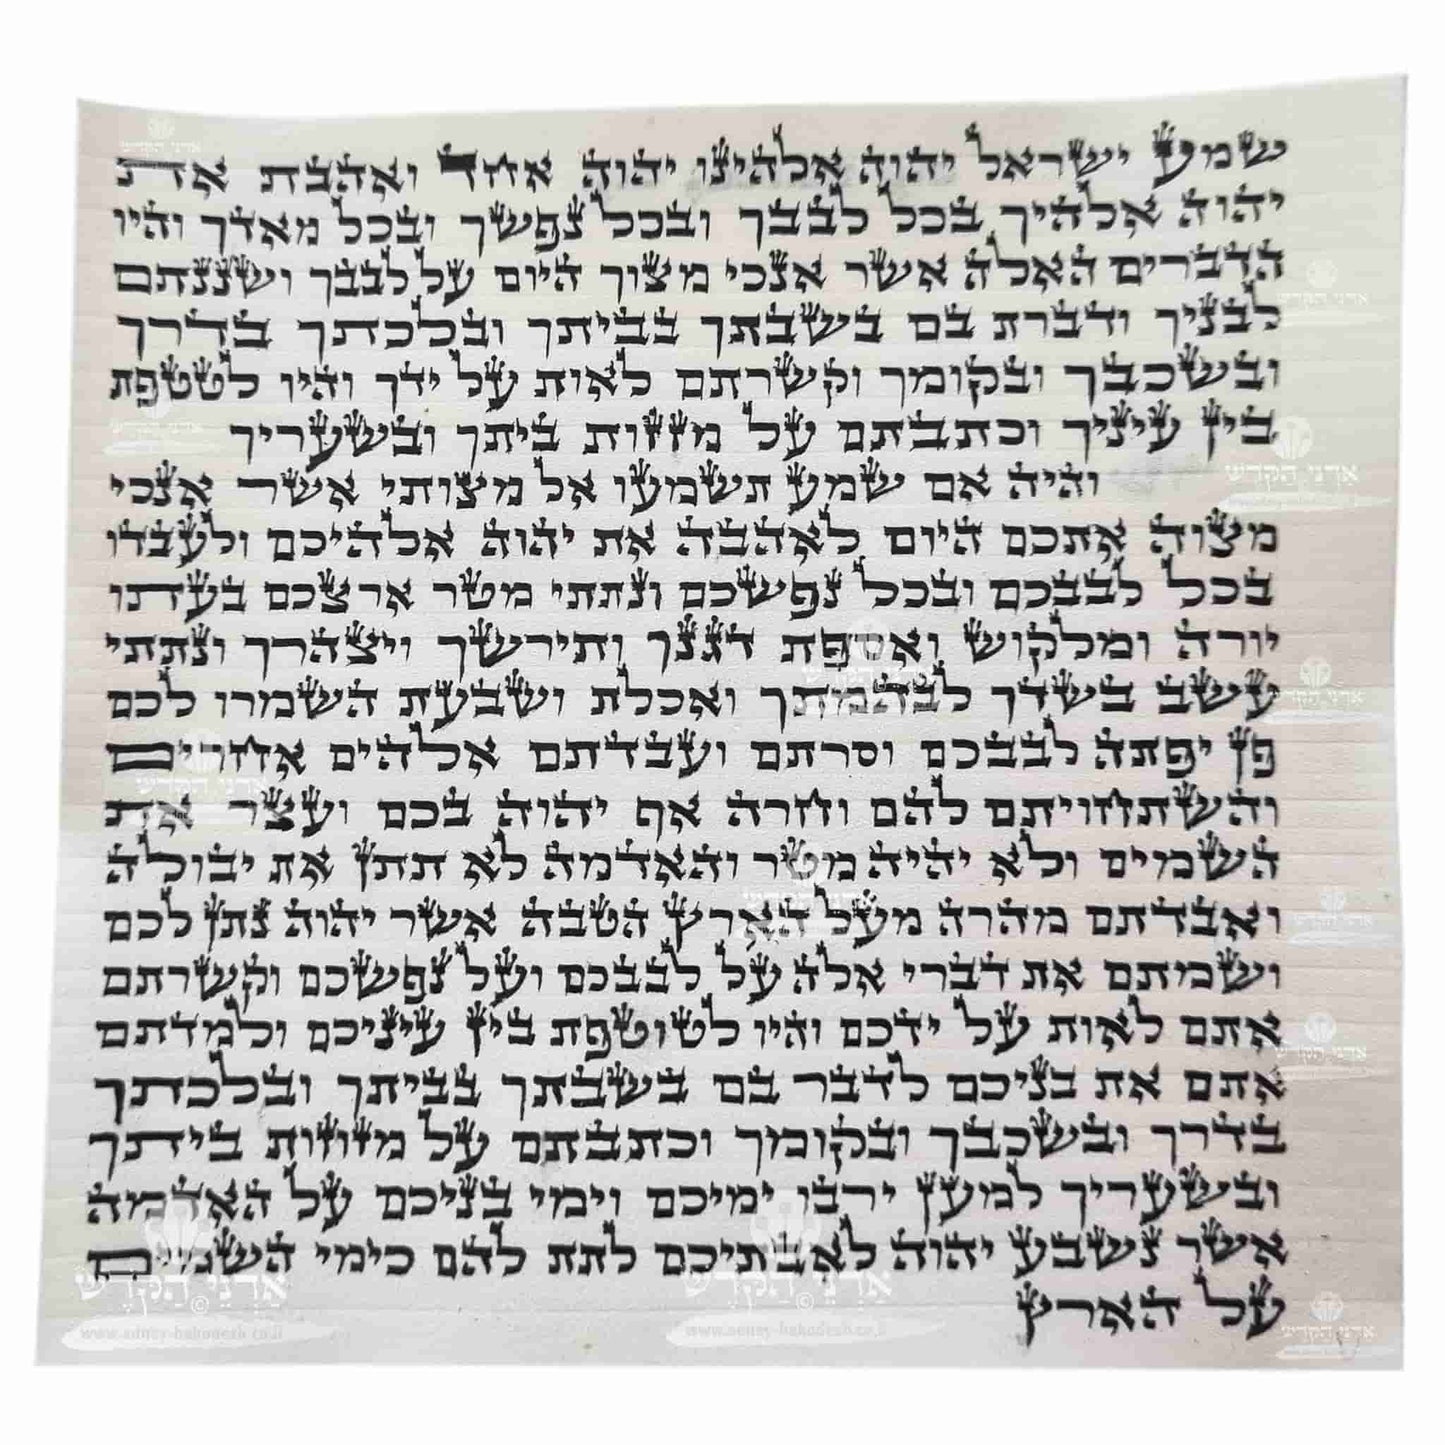 שמע ישראל יהוה אלהינו יהוה אחד ואהבת את
יהוה אלהיך בכל לבבך ובכל נפשך ובכל מאדך והיו
הדברים האלה אשר אנכי מצוך היום על לבבך ושננתם
לבניך ודברת בם בשבתך בביתך ובלכתך בדרך
ובשכבך ובקומך וקשרתם לאות על ידך והיו לטטפת
בין עיניך וכתבתם על מזזות ביתך ובשעריך
והיה אם שמע תשמעו אל מצותי אשר אנכי
מצוה אתכם היום לאהבה את יהוה אלהיכם ולעבדו
בכל לבבכם ובכל נפשכם ונתתי מטר ארצכם בעתו
יורה ומלקוש ואספת דגנך ותירשך ויצהרך ונתתי
עשב בשדך לבהמתך ואכלת ושבעת השמרו לכם
פן יפתה לבבכם וסרתם ועבדתם אלהים אחרים
והשתחויתם להם וחרה אף יהוה בכם ועצר את
השמים ולא יהיה מטר והאדמה לא תתן את יבולה
ואבדתם מהרה מעל הארץ הטבה אשר יהוה נתן לכם
ושמתם את דברי אלה על לבבכם ועל נפשכם וקשרתם
אתם לאות על ידכם והיו לטוטפת בין עיניכם ולמדתם
אתם את בניכם לדבר בם בשבתך בביתך ובלכתך
בדרך ובשכבך ובקומך וכתבתם על מזוזות ביתך
ובשעריך למען ירבו ימיכם וימי בניכם על האדמה
אשר נשבע יהוה לאבתיכם לתת להם כימי השמים
על הארץ
אַדְנֵי הַקֹּדֶשׁ
www.adney-hakodesh.co.il